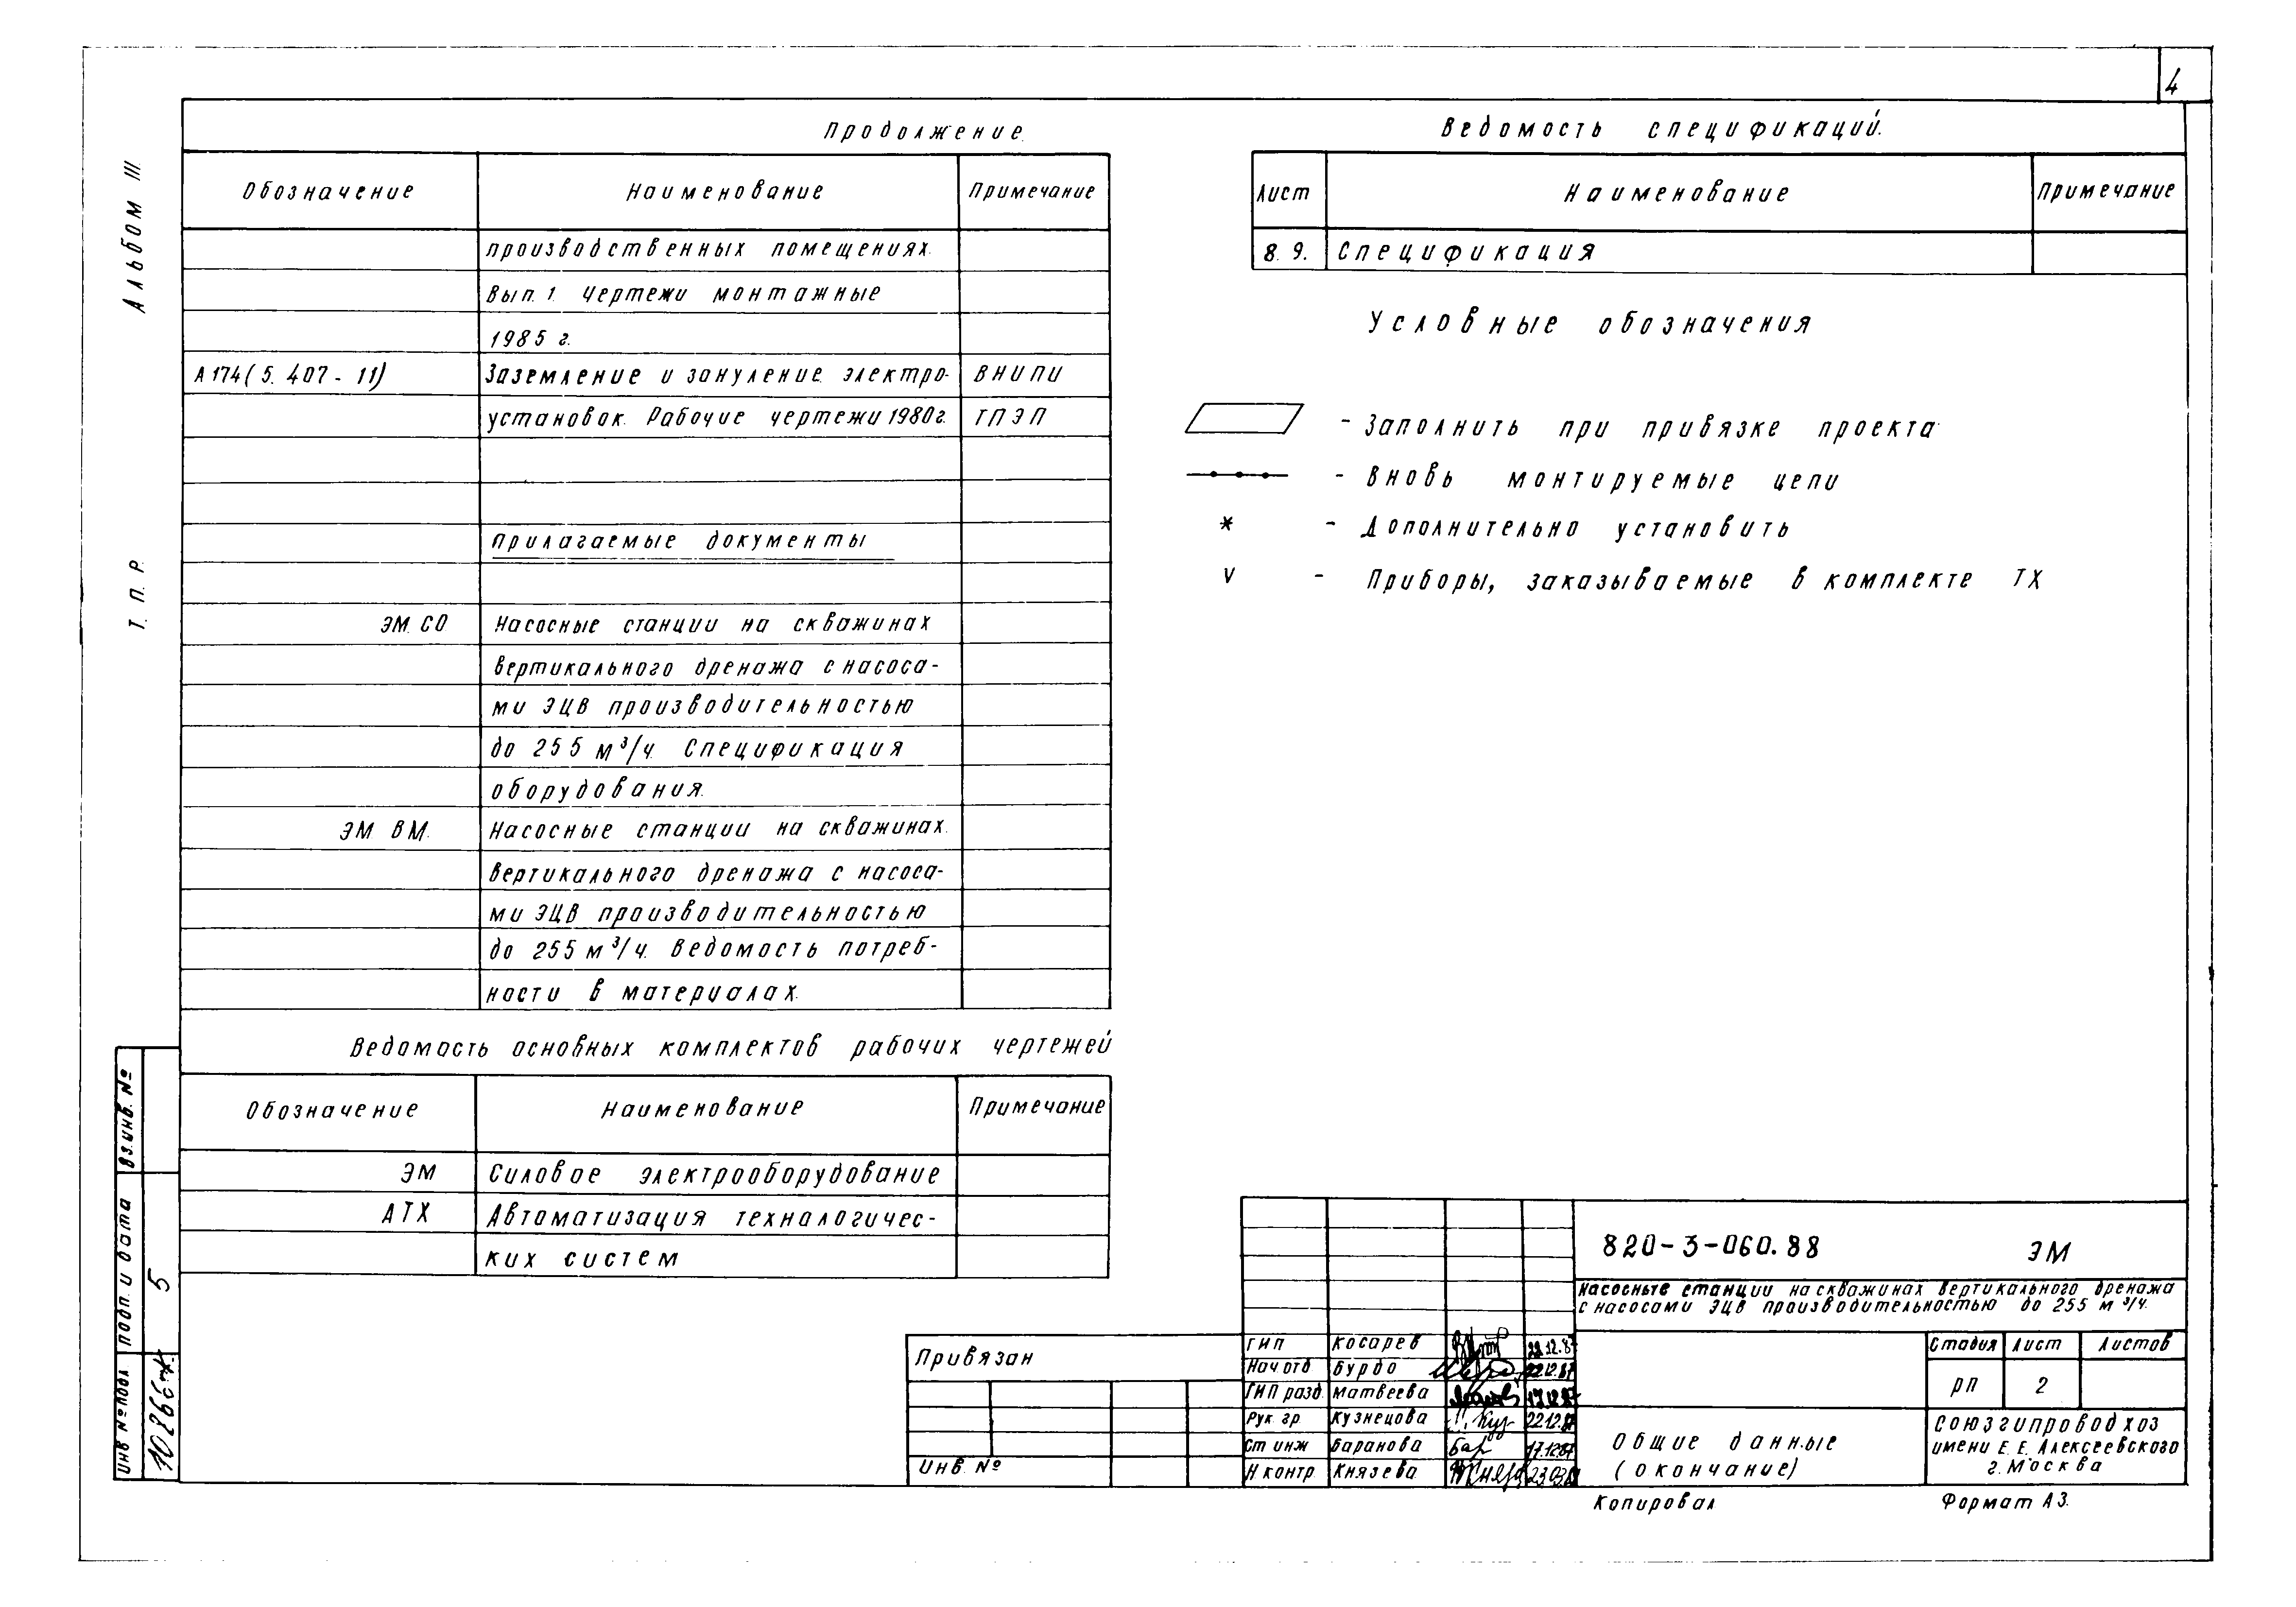 4
Альбом III
Т. П. Р.
Продолжение
Обозначение Наименование Примечание
производственных помещениях.
Вып. 1. Чертежи монтажные
1985 г.
А174 (5. 407 - 11) Заземление и зануление электро- ВНИПИ
установок. Рабочие чертежи 1980г. ТПЭП
Прилагаемые документы
ЭМ. СО Насосные станции на скважинах
вертикального дренажа с насоса-
ми ЭЦВ производительностью
до 255 м³/ч. Спецификация
оборудования.
ЭМ ВМ. Насосные станции на скважинах
вертикального дренажа с насоса-
ми ЭЦВ производительностью
до 255 м³/ч. Ведомость потреб-
ности в материалах.
Ведомость основных комплектов рабочих чертежей
Обозначение Наименование Примечание
ЭМ Силовое электрооборудование
АТХ Автоматизация технологичес-
ких систем
Ведомость спецификаций.
Лист Наименование Примечание
8. 9. Спецификация
Условные обозначения
- Заполнить при привязке проекта
- Вновь монтируемые цепи
* - Дополнительно установить
v - Приборы, заказываемые в комплекте ТХ
Вз.инв. №
Подп. и дата 5
Инв № подл
Привязан
Инв. №
820-3-060.88 ЭМ
Насосные станции на скважинах вертикального дренажа
с насосами ЭЦВ производительностью до 255 м³/ч.
ГИП Косарев 22.12.87
Нач отд Бурдо 22.12.87
ГИП разд. Матвеева 17.12.87
Рук. гр Кузнецова 22.12.87
Ст инж Баранова 17.12.87
Н контр Князева
Стадия Лист Листов
РП 2
Общие данные
(окончание)
Союзгипроводхоз
имени Е. Е. Алексеевского
г. Москва
Копировал Формат А3.